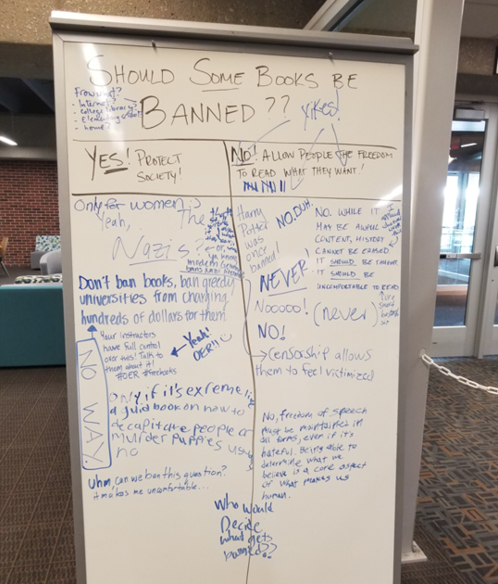 SHOULD SOME BOOKS BE
BANNED??
From what?
- Internet
- College library?
- Elementary school?
- home
yikes!
YES! PROTECT
SOCIETY!
NO! ALLOW PEOPLE THE FREEDOM
TO READ WHAT THEY WANT!
Only for women's
Yeah,
The
Nazis?
modern
Don't ban books, ban greedy
universities from charging
hundreds of dollars for them
Your instructors
have full control
over this! Talk to
them about it!
#OER
Yeah!
OER!!
NO WAY.
Only if it's extreme like
a guid book on how to
decapitate people or
murder puppies
no
Uhm, can we ban this question?
it makes me uncomfortable...
Harry
Potter
was
once
banned!
NO, DUH.
NEVER
Nooooo!
(never)
NO!
NO. WHILE IT
MAY BE AWFUL
CONTENT, HISTORY
CANNOT BE ERASED.
IT SHOULD BE
IT SHOULD BE
UNCOMFORTABLE TO READ
Censorship allows
them to feel victimized
No, freedom of speech
must be maintained in
all forms, even if it's
hateful. Being able to
determine what we
believe is a core aspect
of what makes us
human.
Who would
Decide
what gets
banned??